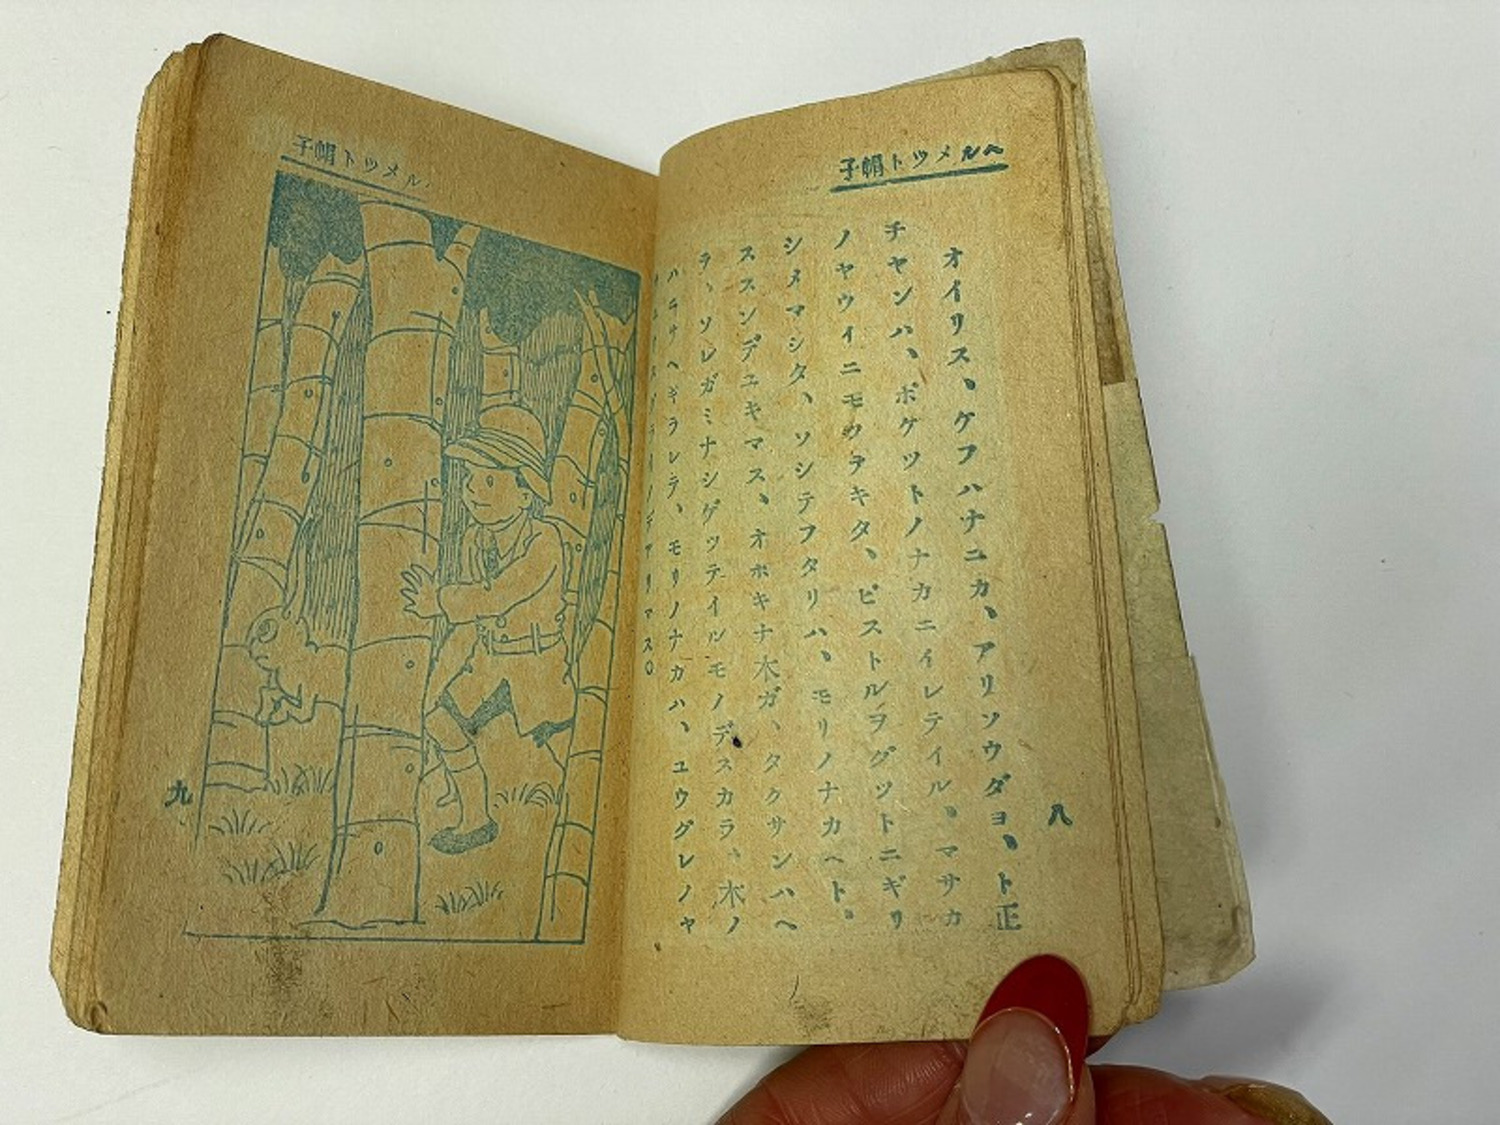 ヘルメツト帽子
オイリス、ケフハナニカ、アリソウダヨ、ト正
チヤンハ、ポケツトノナカニイレテイル、マサカ
ノヤウイニモウヲキタ、ピストルヲグツトニギリ
シメマシタ、ソシテフタリハ、モリノナカヘト、
ススンデユキマス、オホキナ木ガ、タクサンハヘ
ヲ、ソレガミナシゲツテイルモノデスカラ、木ノ
ハニサヘギラレテ、モリノナカハ、ユウグレノヤ
スグライノデアリマス。
八
ルメツト帽子
九